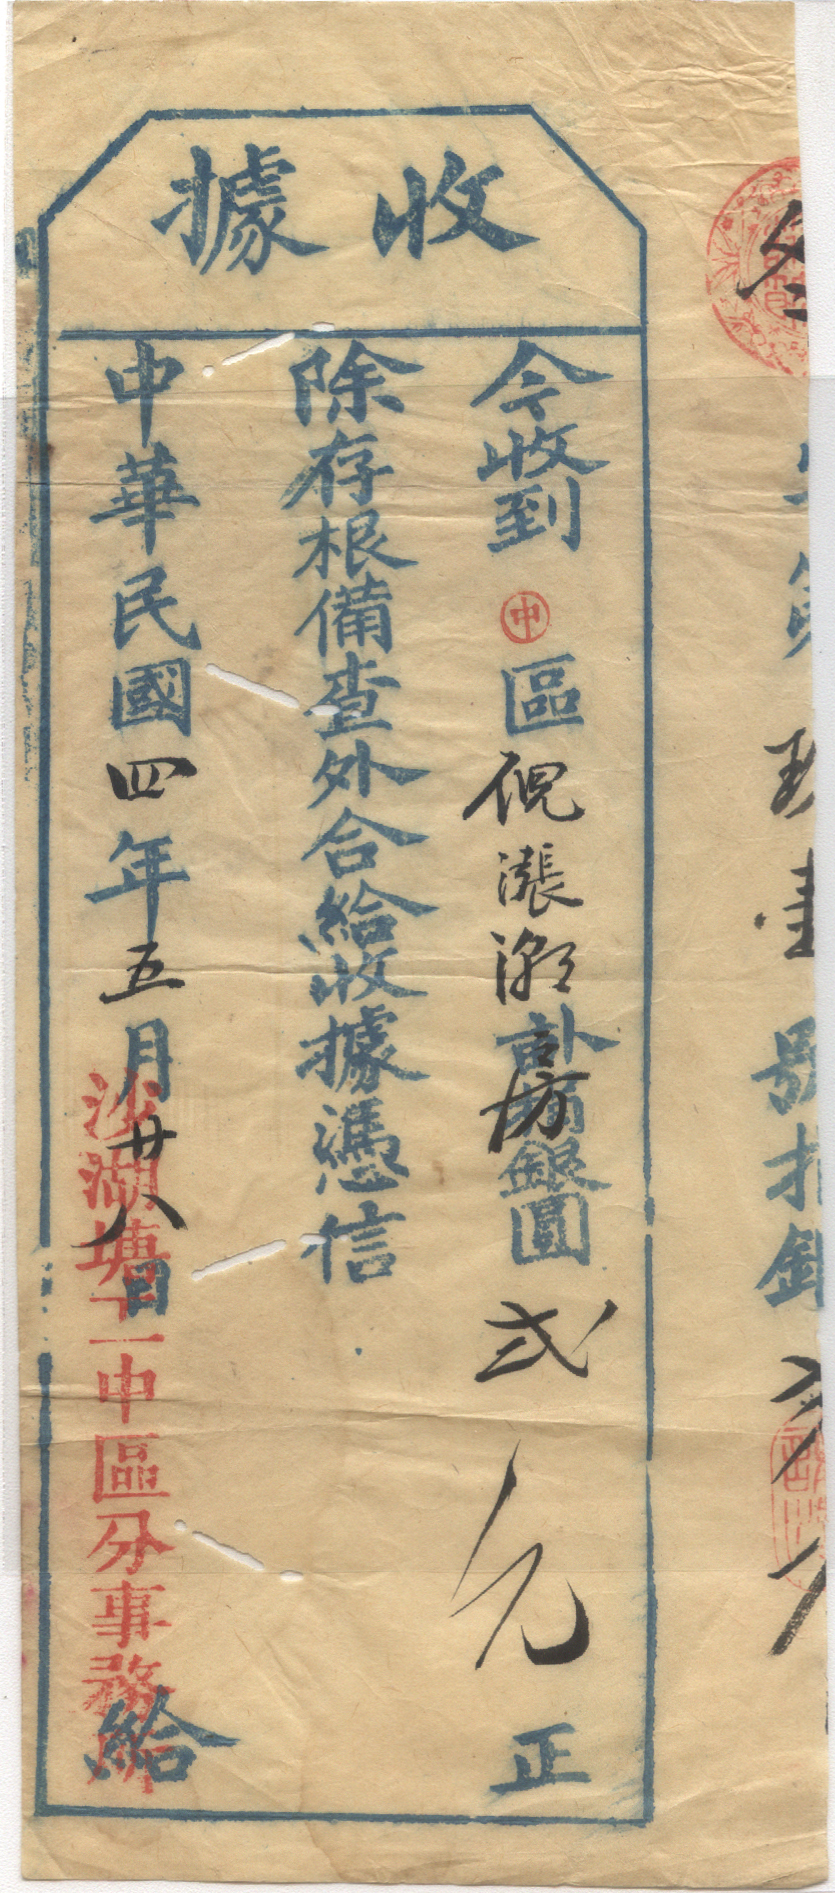 收據
今收到中區倪漲潮房補銀圓弍元正
除存根備查外合給收據憑信
中華民國四年五月廿八日給
沙湖塘工中區分事務所
第
壹號捐銀